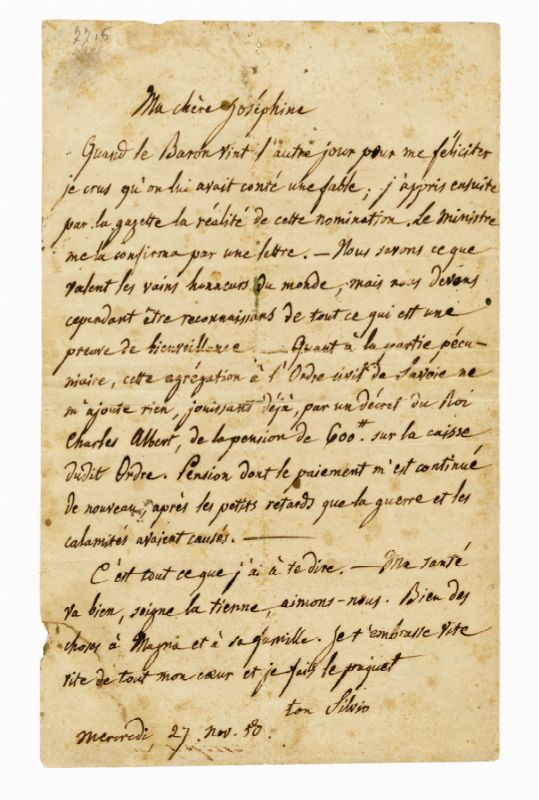 2216
Ma chère Joséphine
Quand le Baron vint l'autre jour pour me féliciter
je crus qu'on lui avait conté une fable ; j'appris ensuite
par la gazette la réalité de cette nomination. Le Ministre
me la confirma par une lettre. — Nous savons ce que
valent les vains honneurs du monde, mais nous devons
cependant être reconnaissans de tout ce qui est une
preuve de bienveillance — Quant à la partie pécu-
niaire, cette agrégation à l'Ordre civil de Savoie ne
m'ajoute rien, jouissant déjà, par un décret du Roi
Charles Albert, de la pension de 600 ₶. sur la caisse
dudit Ordre. Pension dont le paiement m'est continué
de nouveau, après les petits retards que la guerre et les
calamités avaient causés. —
C'est tout ce que j'ai à te dire. — Ma santé
va bien, soigne la tienne, aimons-nous. Bien des
choses à Magna et à sa famille. Je t'embrasse vite
vite de tout mon cœur et je fais le paquet
ton Silvio
Mercredi, 27. nov. 50.